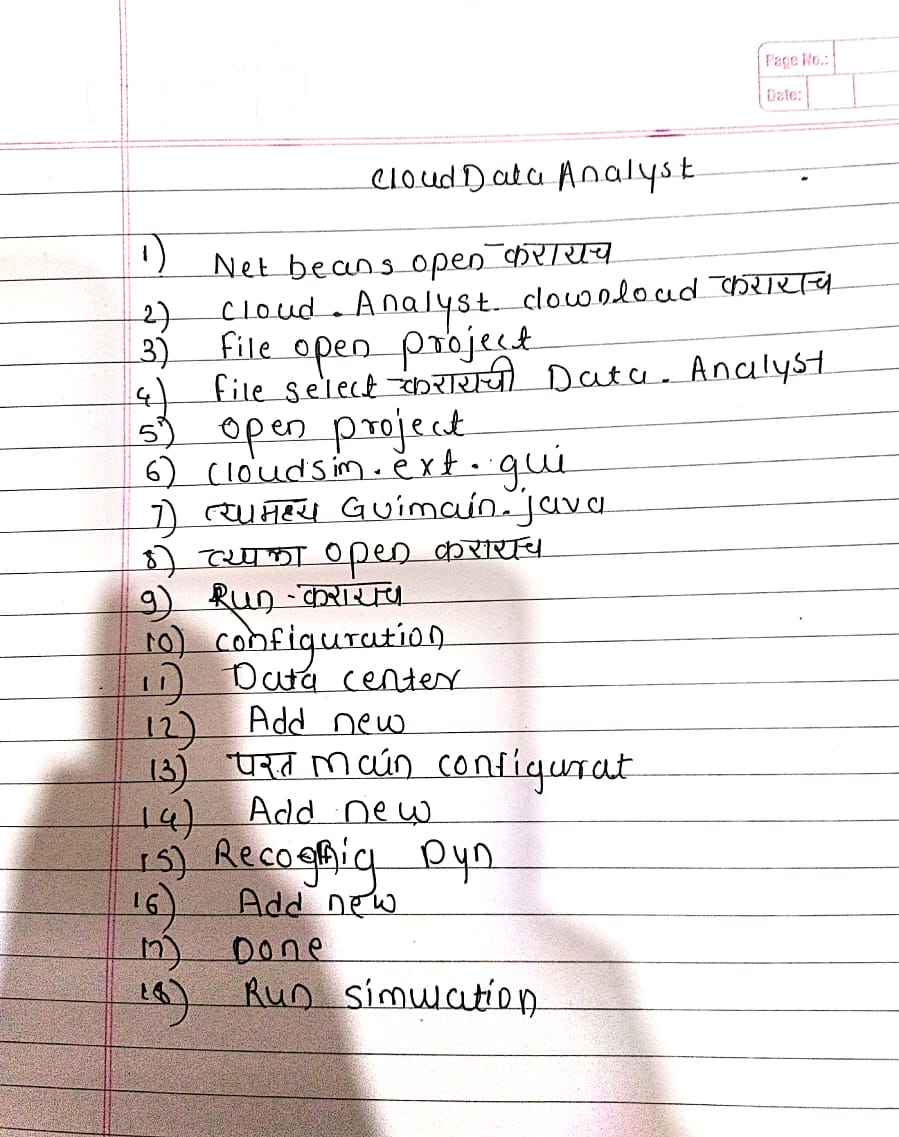 Page No.:
Date:
Cloud Data Analyst
1) Net beans open करायच
2) Cloud . Analyst. download करायच
3) File open project
4) file select करायची Data . Analyst
5) open project
6) cloudsim . ext . gui
7) त्यामध्य Guimain.java
8) open करायच
9) Run - करायच
10) configuration
11) Data center
12) Add new
13) परत main configurat
14) Add new
15) Dyn
16) Add new
17) Done
18) Run simulation